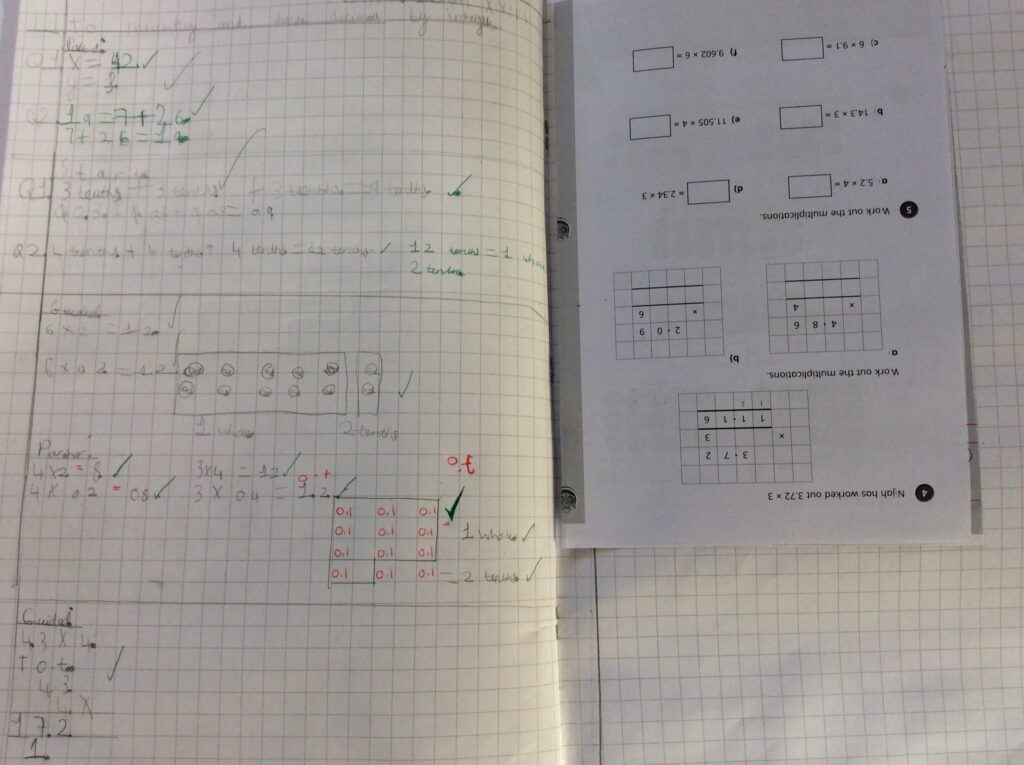 To multiply and divide decimals by integers
Q1 x = 42
y = 3
Q2 1a = 7 + 2b
7 + 2b = 1a
Starter
Q1. 3 tenths + 3 tenths + 3 tenths = 9 tenths
= 0.9
Q2. 4 tenths + 4 tenths + 4 tenths = 12 tenths 12 tenths = 1 whole
2 tenths
Guided
6 x 2 = 12
6 x 0.2 = 1.2
1 whole 2 tenths
Partner
4 x 2 = 8 3 x 4 = 12
4 x 0.2 = 0.8 3 x 0.4 = 1.2
0.1 0.1 0.1
0.1 0.1 0.1
= 1 whole
0.1 0.1 0.1
0.1 0.1 0.1 = 2 tenths
Guided
4.3 x 4
T O . t
4.3
4 x
17.2
1
4 Nijah has worked out 3.72 × 3
3 · 7 2
× 3
1 1 · 1 6
1 2
Work out the multiplications.
a)
4 · 8 6
× 4
b)
2 · 0 9
× 6
5 Work out the multiplications.
a) 5.2 × 4 =
d) = 2.34 × 3
b) 14.3 × 3 =
e) 11.505 × 4 =
c) 6 × 9.1 =
f) 9.602 × 6 =